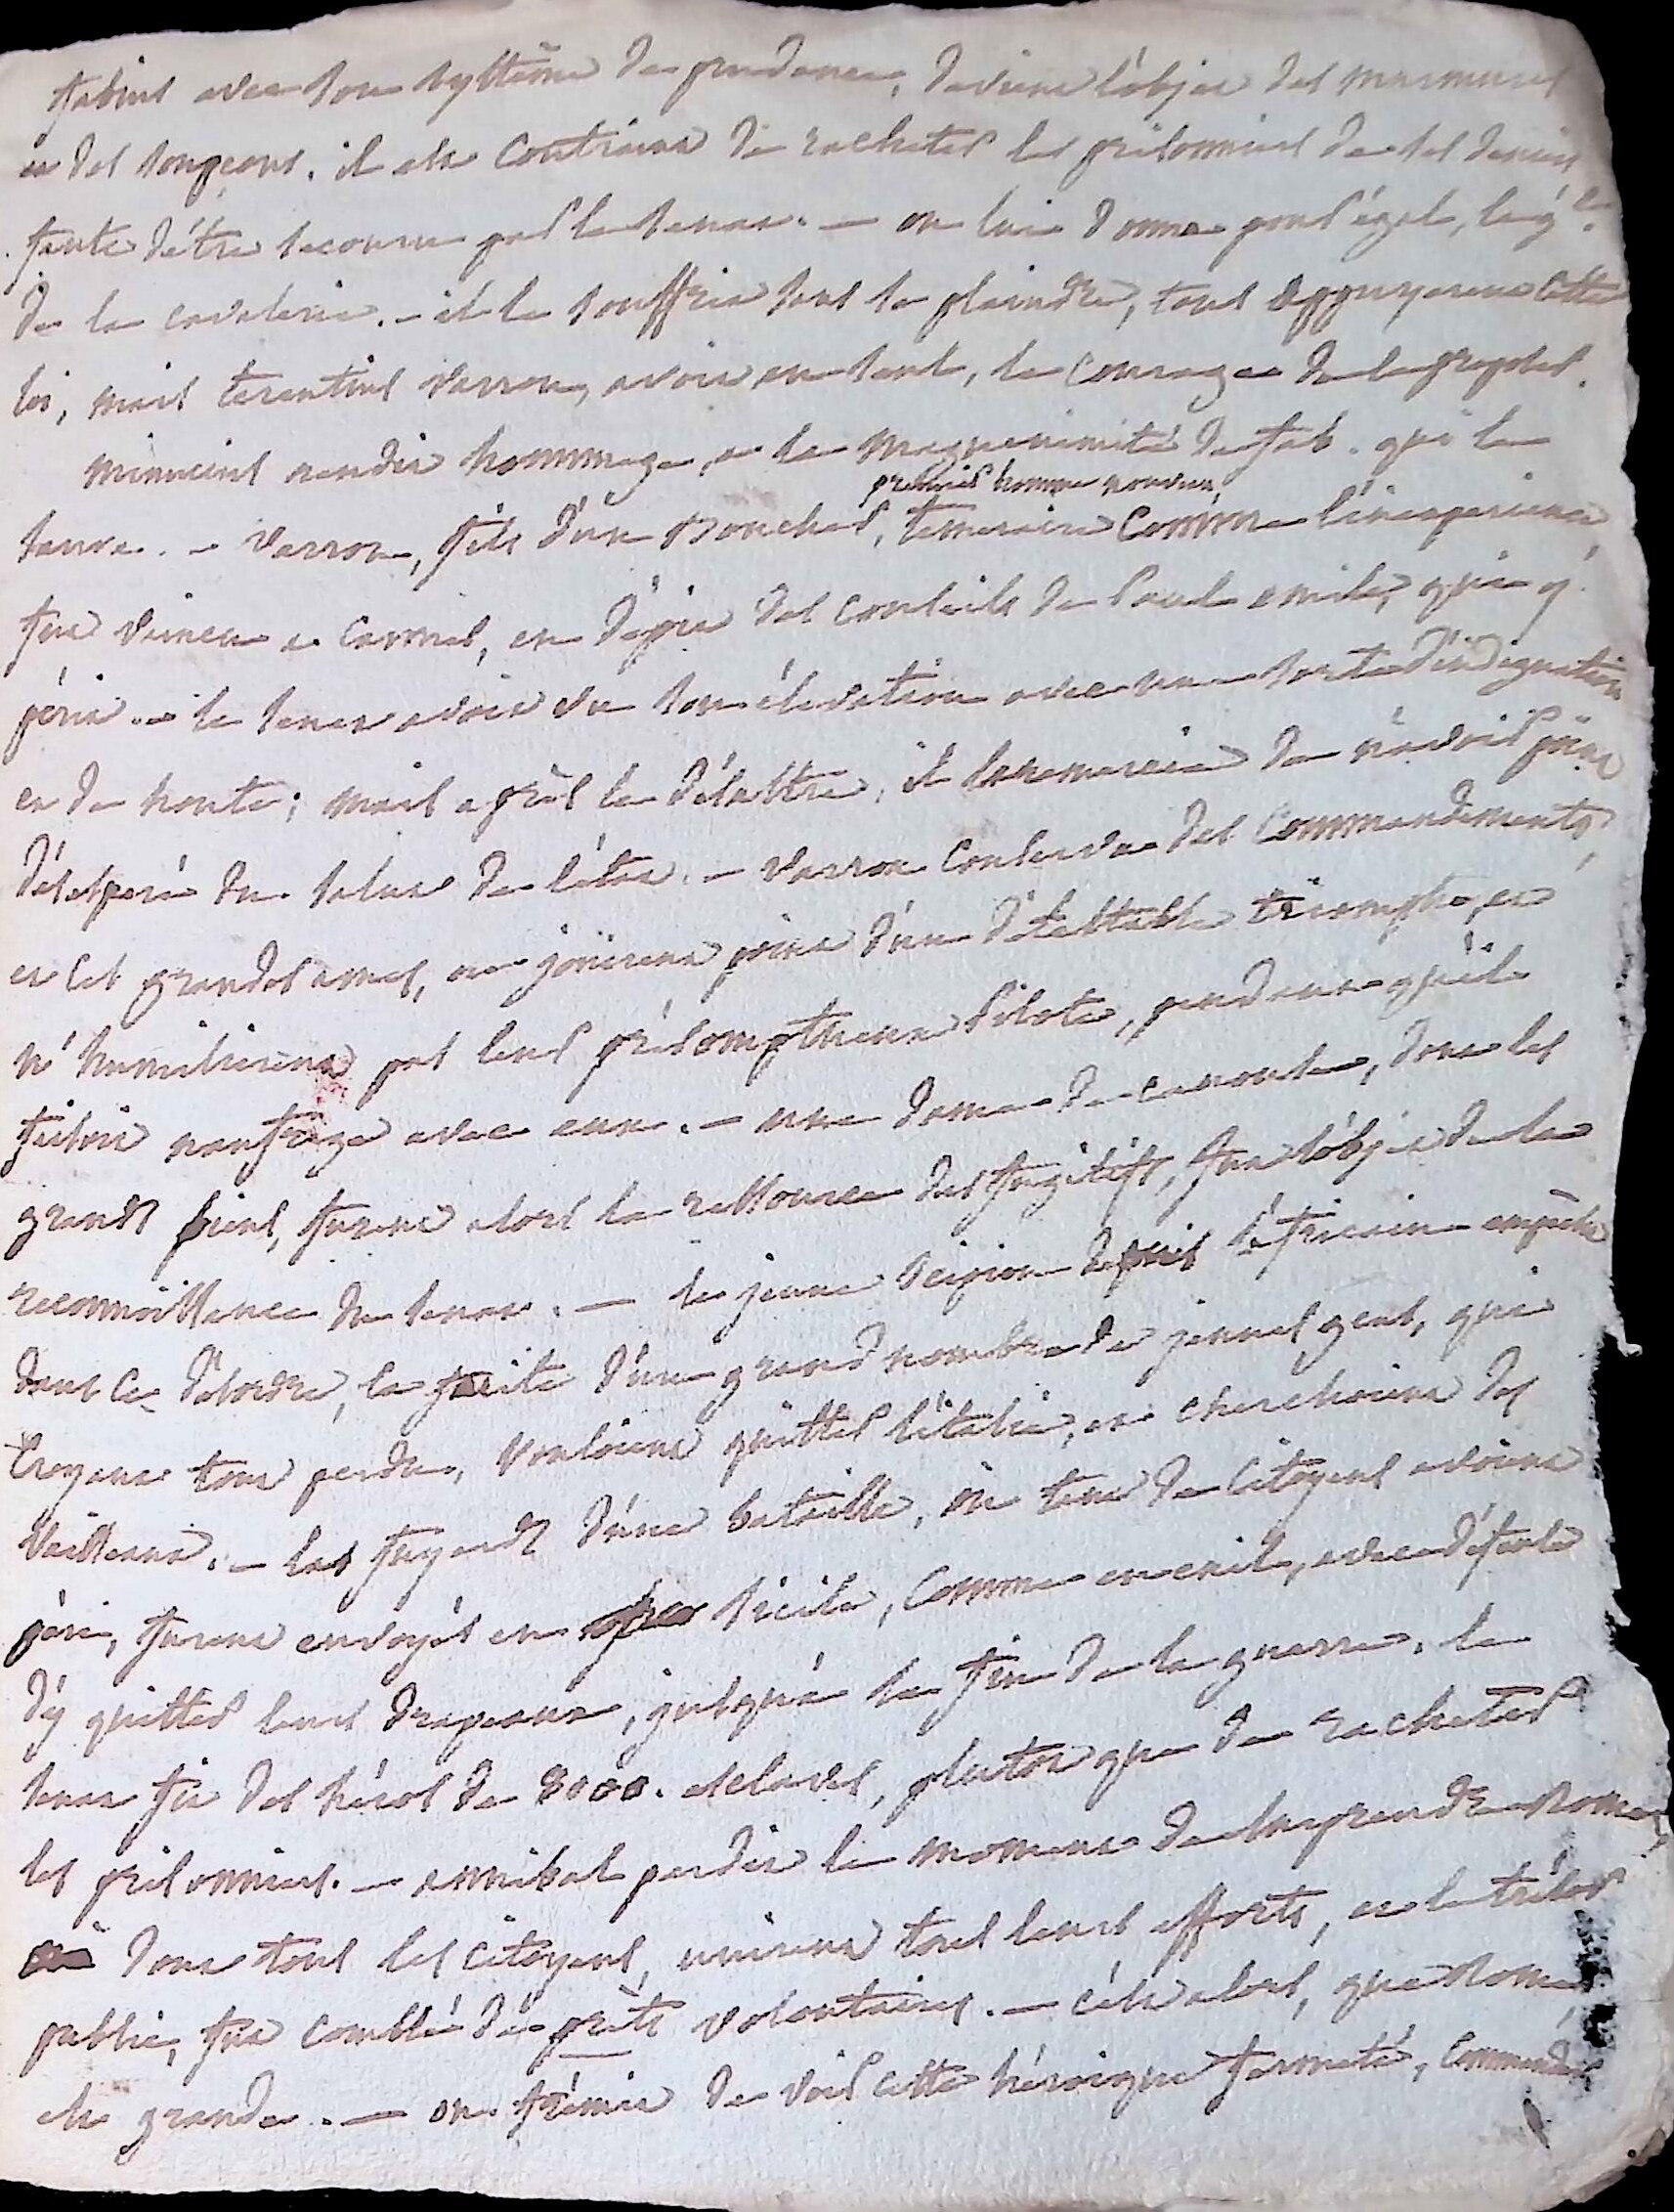 fabius avec son systême de prudence, devient l'objet des murmures
et des soupçons. il est contraint de racheter les prisonniers de ses deniers
faute d'être secouru par le senat. — on lui donne pour égal, le g.al
de la cavalerie. — il le souffrit sans se plaindre, tous appuyerent cette
loi, mais terentius varron, avoit eu seul, le courage de la proposer.
minucius rendit hommage, a la magnanimité de fab. qui le
sauva. — varron, fils d'un Boucher, premier homme nouveau, temeraire comme l'inexperience,
fut vaincu a Cannes, en dépit des conseils de Paul emile, qui y
périt. — le senat avoit vu son élevation avec une sorte d'indignation
et de honte; mais après le désastre, il le remercia de n'avoir point
désesperé du salut de l'état. — varron conserva des commandements,
et ces grandes ames, ne jouirent point d'un détestable triomphe, et
n'humilierent pas leur présomptueux Pilote, pendant qu'il
faisoit naufrage avec eux. — une dame de canouse, dont les
grands biens, furent alors la ressource des fugitifs, fut l'objet de la
reconnoissance du senat. — le jeune Scipion depuis l'africain empêcha
dans ce désordre, la fuite d'un grand nombre de jeunes gens, qui
croyant tout perdu, vouloient quitter l'italie, et cherchoient des
vaisseaux. — les fuyards d'une bataille, où tant de citoyens avoient
péri, furent envoyés en Sicile, comme en exil, avec défense
d'y quitter leurs drapeaux, jusqu'à la fin de la guerre. le
senat fit des héros de 8000. esclaves, plutot que de racheter
les prisonniers. — annibal perdit le moment de surprendre Rome,
dont tous les citoyens, unirent tous leurs efforts, et le trésor
public, fut comblé de prêts volontaires. — c'est alors, que Rome
est grande. — on frémit de voir cette héroique fermeté, commander